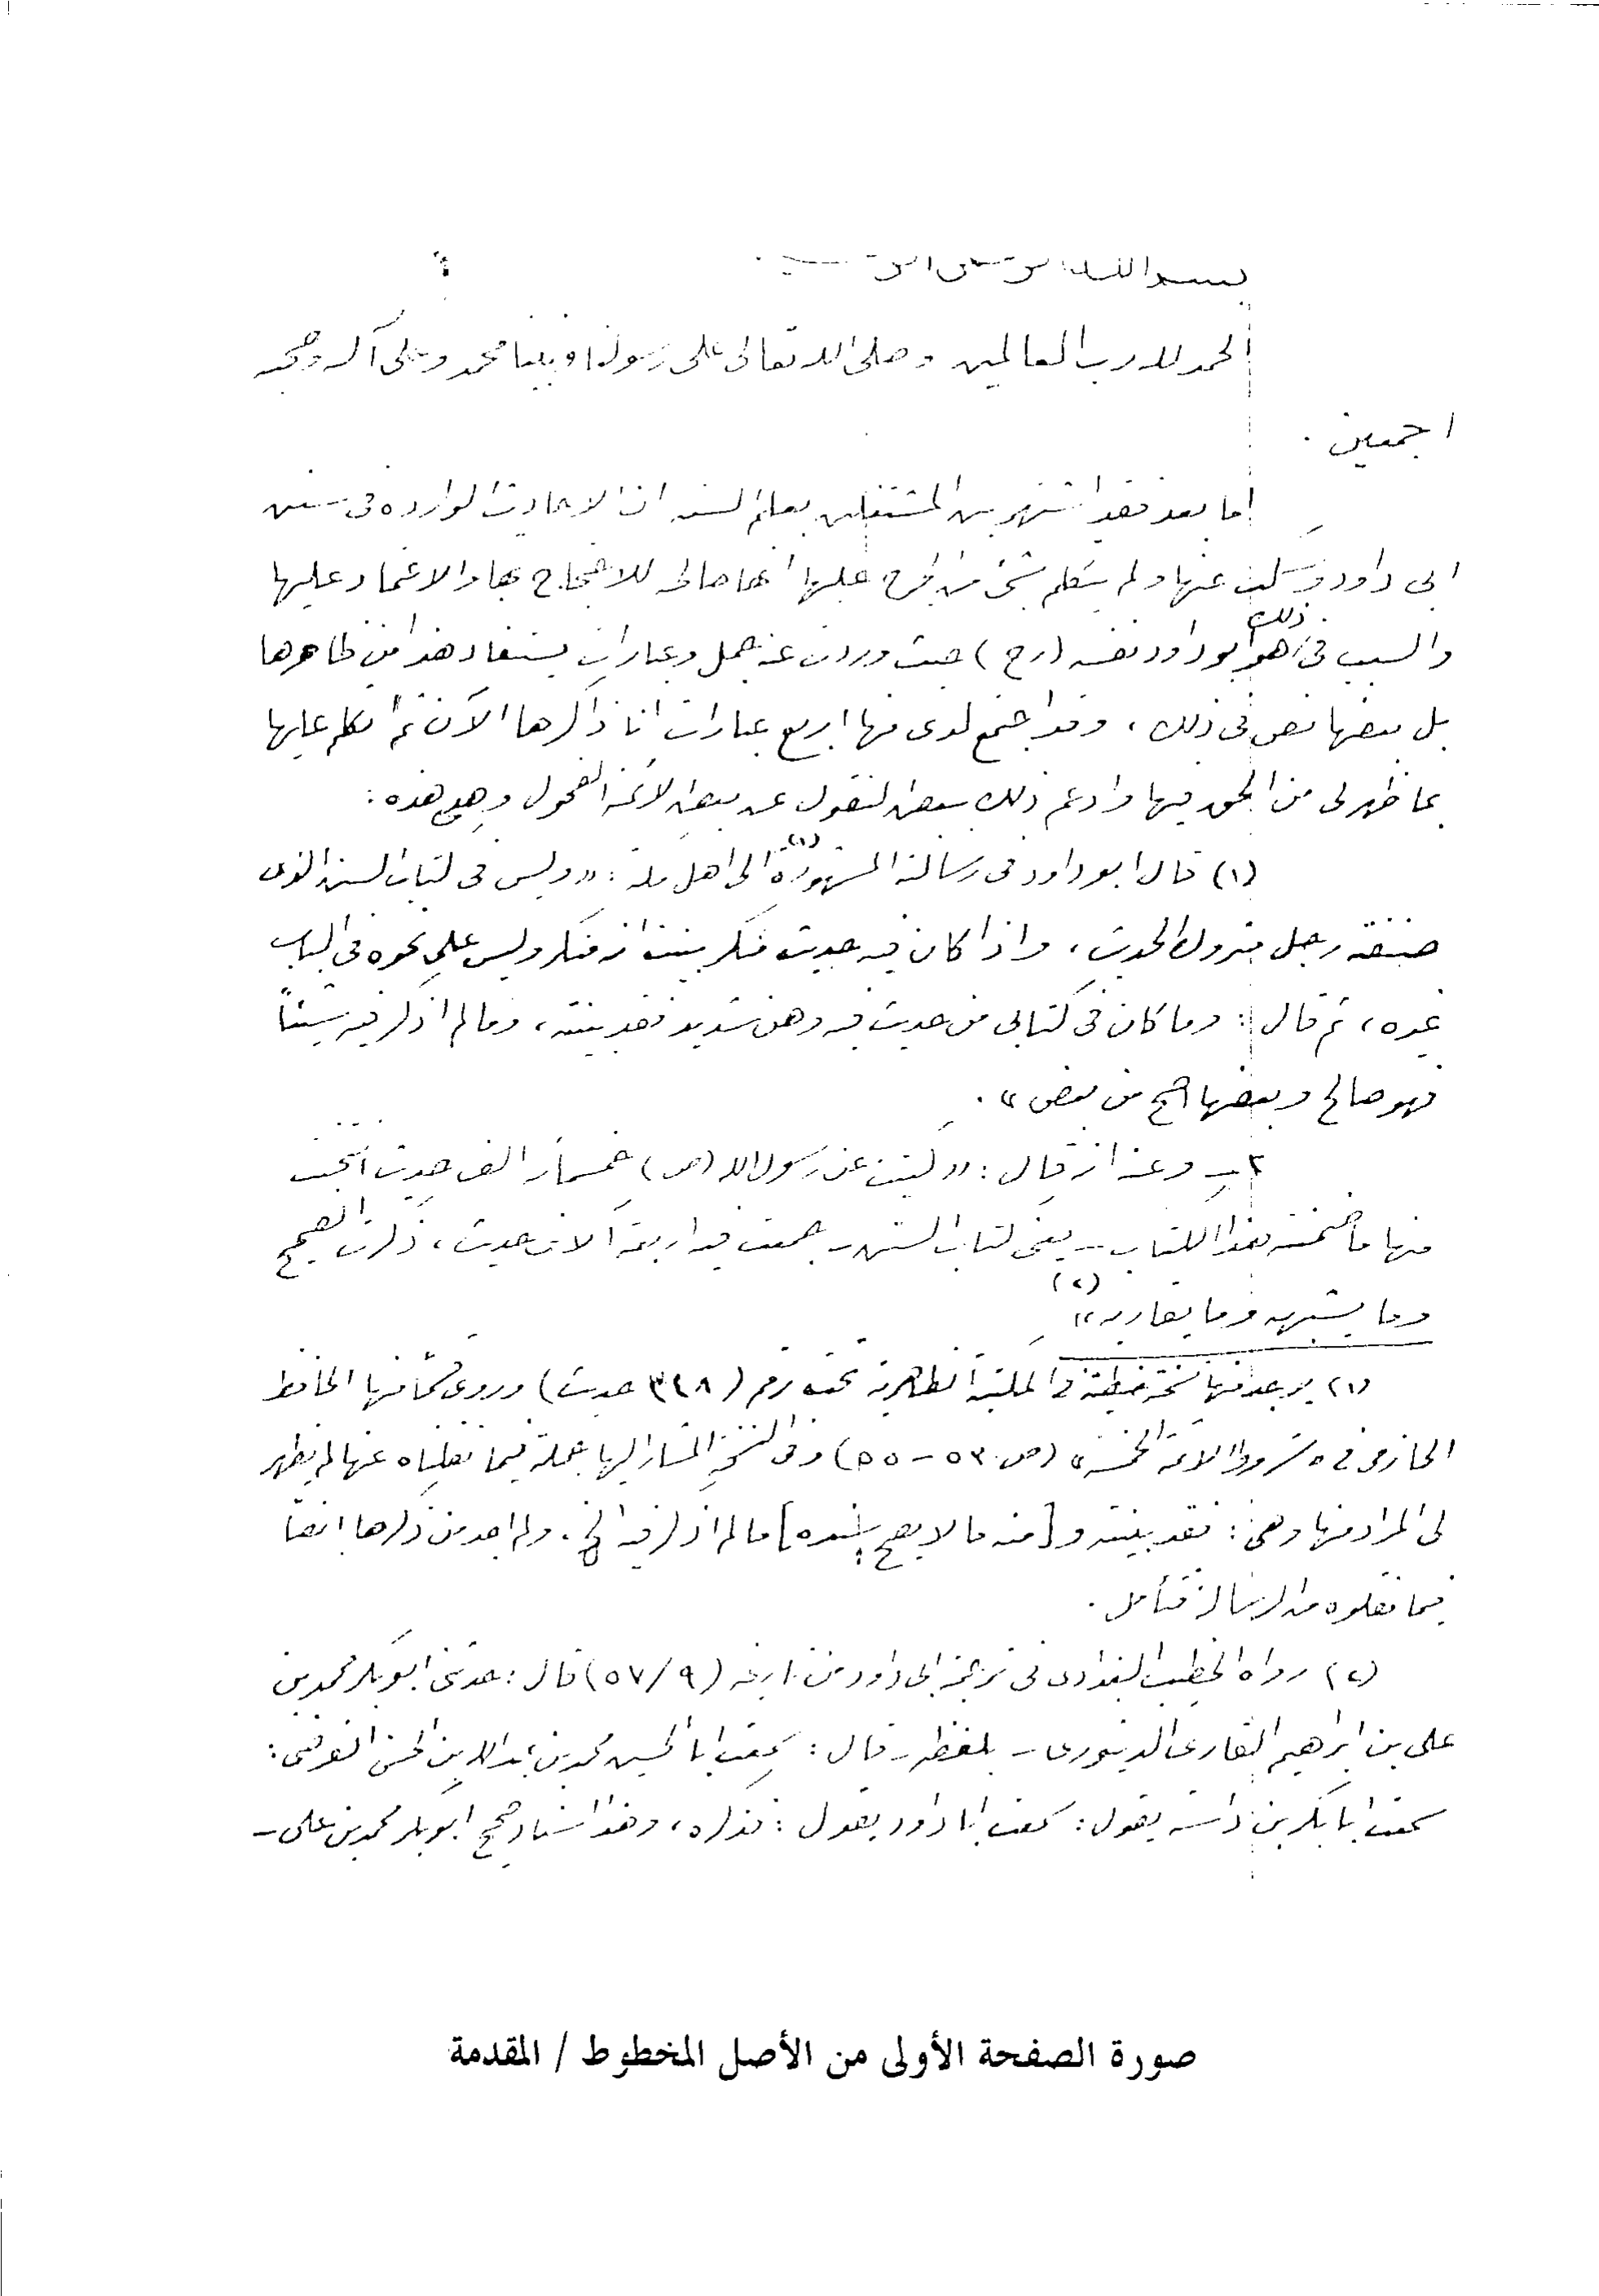 بسم الله الرحمن الرحيم
الحمد لله رب العالمين وصلى الله تعالى على رسولنا ونبينا محمد وعلى آله وصحبه
اجمعين .
اما بعد فقد اشتهر بين المشتغلين بعلم السنه ان الاحاديث الوارده في سنن
ابي داود وسكت عنها ولم يتكلم بشئ من الجرح عليها انها صالحة للاحتجاج بها والاعتماد عليها
والسبب في ذلك هو ابو داود نفسه (رح) حيث وردت عنه جمل وعبارات يستفاد هذا من ظاهرها
بل بعضها نص في ذلك ، وقد اجتمع لدى منها اربع عبارات انا ذاكرها الآن ثم اتكلم عليها
بما ظهر لي من الحق فيها وادعم ذلك ببعض النقول عن بعض الائمة الفحول وهي هذه :
(١) قال ابو داود في رسالته المشهورة (١) الى اهل مكة : « وليس في كتاب السنن الذي
صنفته رجل متروك الحديث ، واذا كان فيه حديث منكر بينت انه منكر وليس على نحوه في الباب
غيره ، ثم قال : وما كان في كتابي من حديث فيه وهن شديد فقد بينته ، ومالم اذكر فيه شيئاً
فهو صالح وبعضها اصح من بعض » .
٢ـ وعنه انه قال : « كتبت عن رسول الله (ص) خمسمائة الف حديث انتخبت
منها ما ضمنته هذا الكتاب -- يعني كتاب السنن - جمعت فيه اربعة آلاف حديث ، ذكرت الصحيح
وما يشبهه وما يقاربه » (٢)
(١) يوجد منها نسخة خطية في المكتبة الظاهرية تحت رقم (٣٤٨ حديث) وروى قسما منها الحافظ
الحازمي في « شروط الائمة الخمسة » (ص ٥٣ - ٥٥) وفي النسخة المشار اليها جملة فيما نقلناه عنها لم يظهر
لي المراد منها وهي : فقد بينته و [منه ما لا يصح سنده] مالم اذكر فيه الخ . ولم اجد من ذكرها ايضاً
فيما نقلوه من الرسالة فتأمل .
(٢) رواه الخطيب البغدادي في ترجمة ابي داود من تاريخه (٩/٥٧) قال : حدثني ابو بكر محمد بن
علي بن ابراهيم القارئ الدينوري - بلفظه - قال : سمعت ابا الحسين محمد بن عبد الله بن الحسن الفرضي :
سمعت ابا بكر بن داسة يقول : سمعت ابا داود يقول : فذكره ، وهذا اسناد صحيح ابو بكر محمد بن علي -
صورة الصفحة الأولى من الأصل المخطوط / المقدمة